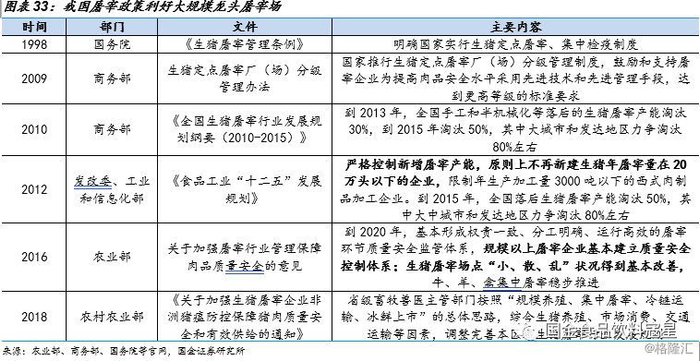 图表 33：我国屠宰政策利好大规模龙头屠宰场
时间 部门 文件 主要内容
1998 国务院 《生猪屠宰管理条例》 明确国家实行生猪定点屠宰、集中检疫制度
2009 商务部 生猪定点屠宰厂（场）分级
管理办法
国家推行生猪定点屠宰厂（场）分级管理制度，鼓励和支持屠
宰企业为提高肉品安全水平采用先进技术和先进管理手段，达
到更高等级的标准要求
2010 商务部 《全国生猪屠宰行业发展规
划纲要（2010-2015）》
到 2013 年，全国手工和半机械化等落后的生猪屠宰产能淘汰
30%，到 2015 年淘汰 50%，其中大城市和发达地区力争淘汰
80%左右
2012 发改委、工业
和信息化部
《食品工业“十二五”发展
规划》
严格控制新增屠宰产能，原则上不再新建生猪年屠宰量在 20
万头以下的企业，限制年生产加工量 3000 吨以下的西式肉制
品加工企业。到 2015 年，全国落后生猪屠宰产能淘汰 50%，其
中大中城市和发达地区力争淘汰 80%左右
2016 农业部 关于加强屠宰行业管理保障
肉品质量安全的意见
到 2020 年，基本形成权责一致、分工明确、运行高效的屠宰
环节质量安全监管体系，规模以上屠宰企业基本建立质量安全
控制体系；生猪屠宰场点“小、散、乱”状况得到基本改善，
牛、羊、禽集中屠宰稳步推进
2018 农村农业部 《关于加强生猪屠宰企业非
洲猪瘟防控保障猪肉质量安
全和有效供给的通知》
省级畜牧兽医主管部门按照“规模养殖、集中屠宰、冷链运
输、冰鲜上市”的总体思路，综合生猪养殖、市场消费、交通
运输等因素，调整完善本区
来源：农业部、商务部、国务院等官网，国金证券研究所
国金食品饮料寇星
@格隆汇